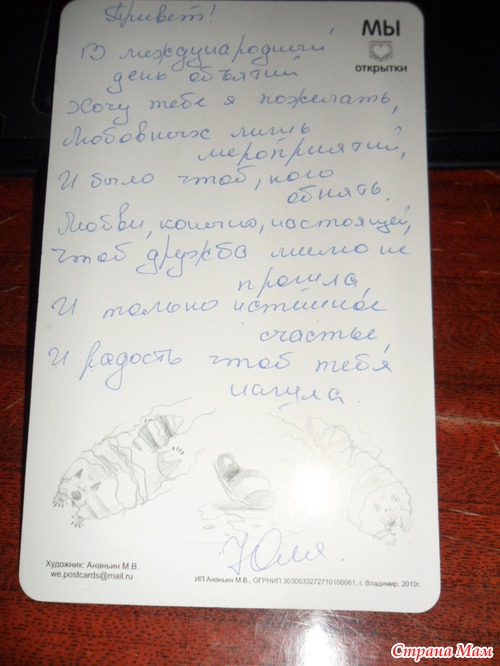 Привет!
МЫ
открытки
В международный
день объятий
Хочу тебе я пожелать,
Любовных лишь
мероприятий,
И было чтоб, кого
обнять.
Любви, конечно, настоящей,
Чтоб дружба мимо не
прошла,
И только истинное
счастье,
И радость чтоб тебя
нашла.
Юля.
Художник: Ананьин М.В.
we.postcards@mail.ru
ИП Ананьин М.В., ОГРНИП 303053327271010061, г. Владимир, 2010г.
Страна Мам